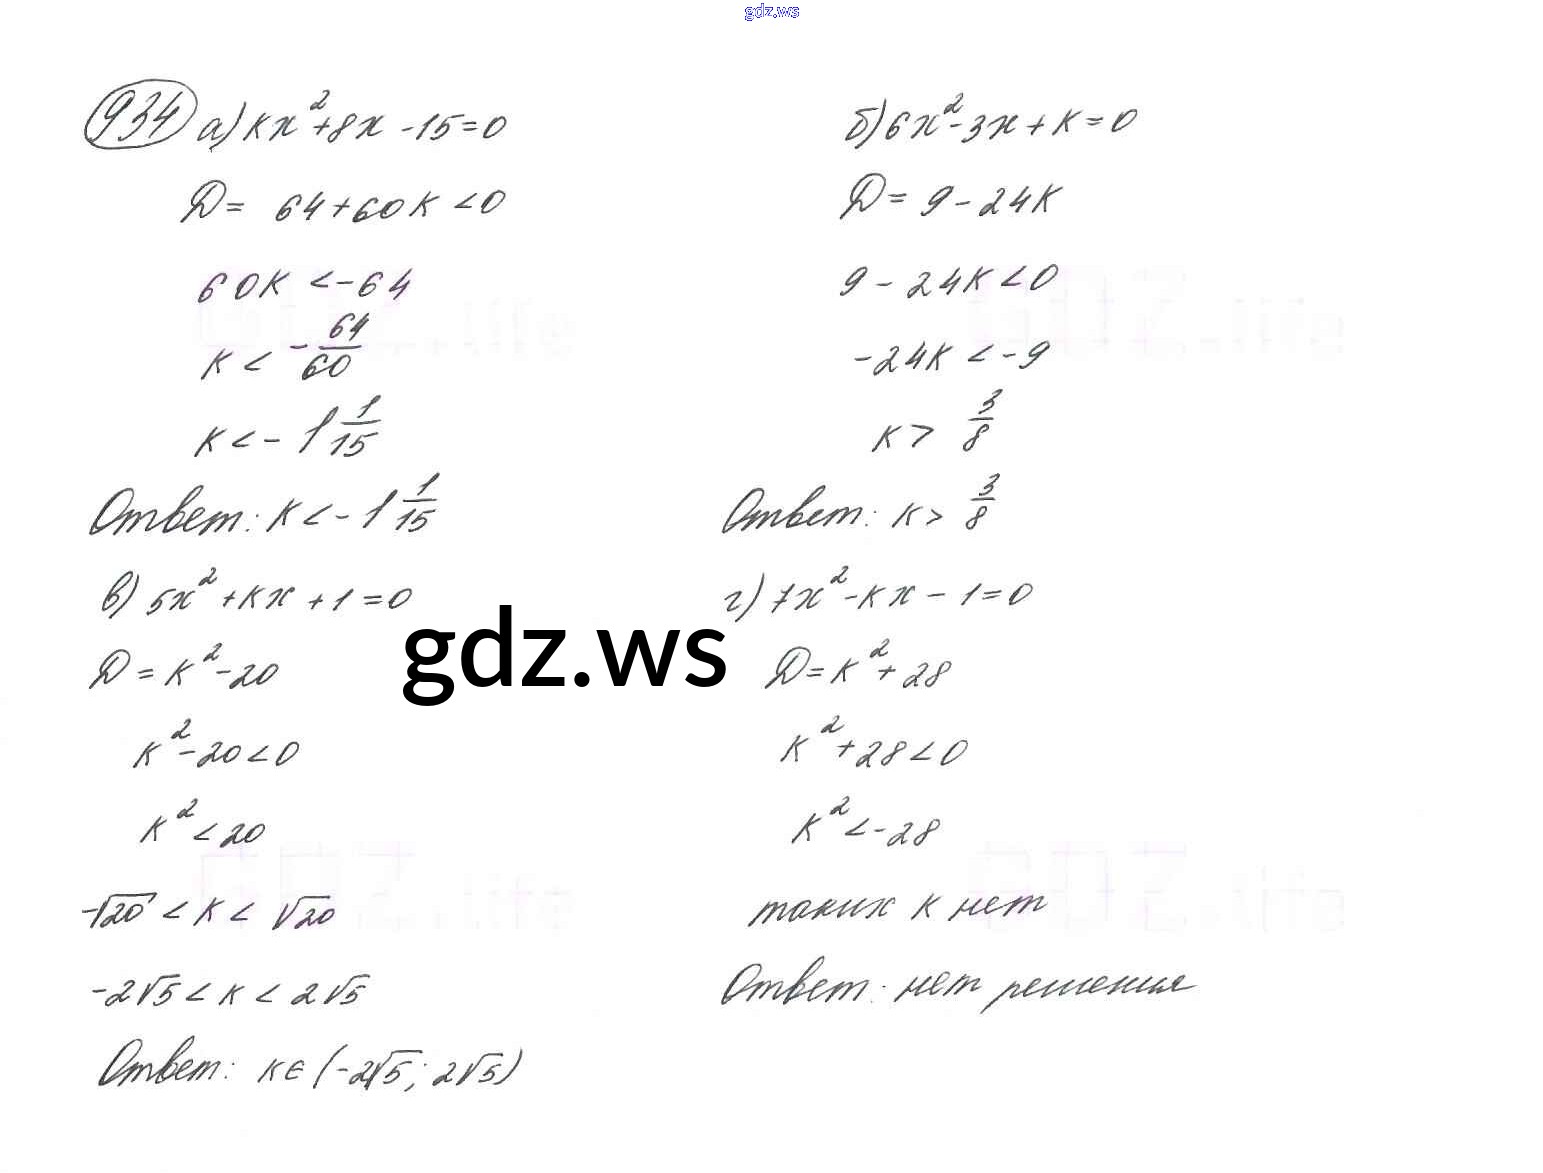 gdz.ws
934 а) kx²+8x-15=0
D= 64+60k<0
60k<-64
k<-64/60
k<-1 1/15
Ответ: k<-1 1/15
б) 6x²-3x+k=0
D=9-24k
9-24k<0
-24k<-9
k> 3/8
Ответ: k> 3/8
в) 5x²+kx+1=0
D=k²-20
k²-20<0
k²<20
-√20<k<√20
-2√5<k<2√5
Ответ: k∈(-2√5; 2√5)
г) 7x²-kx-1=0
D=k²+28
k²+28<0
k²<-28
таких k нет
Ответ: нет решения
gdz.ws
GDZ.life
GDZ.life
GDZ.life
GDZ.life